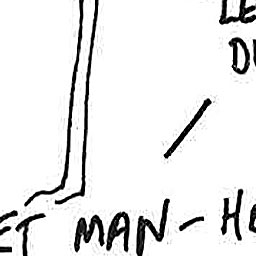 LE
D
ET MAN-H